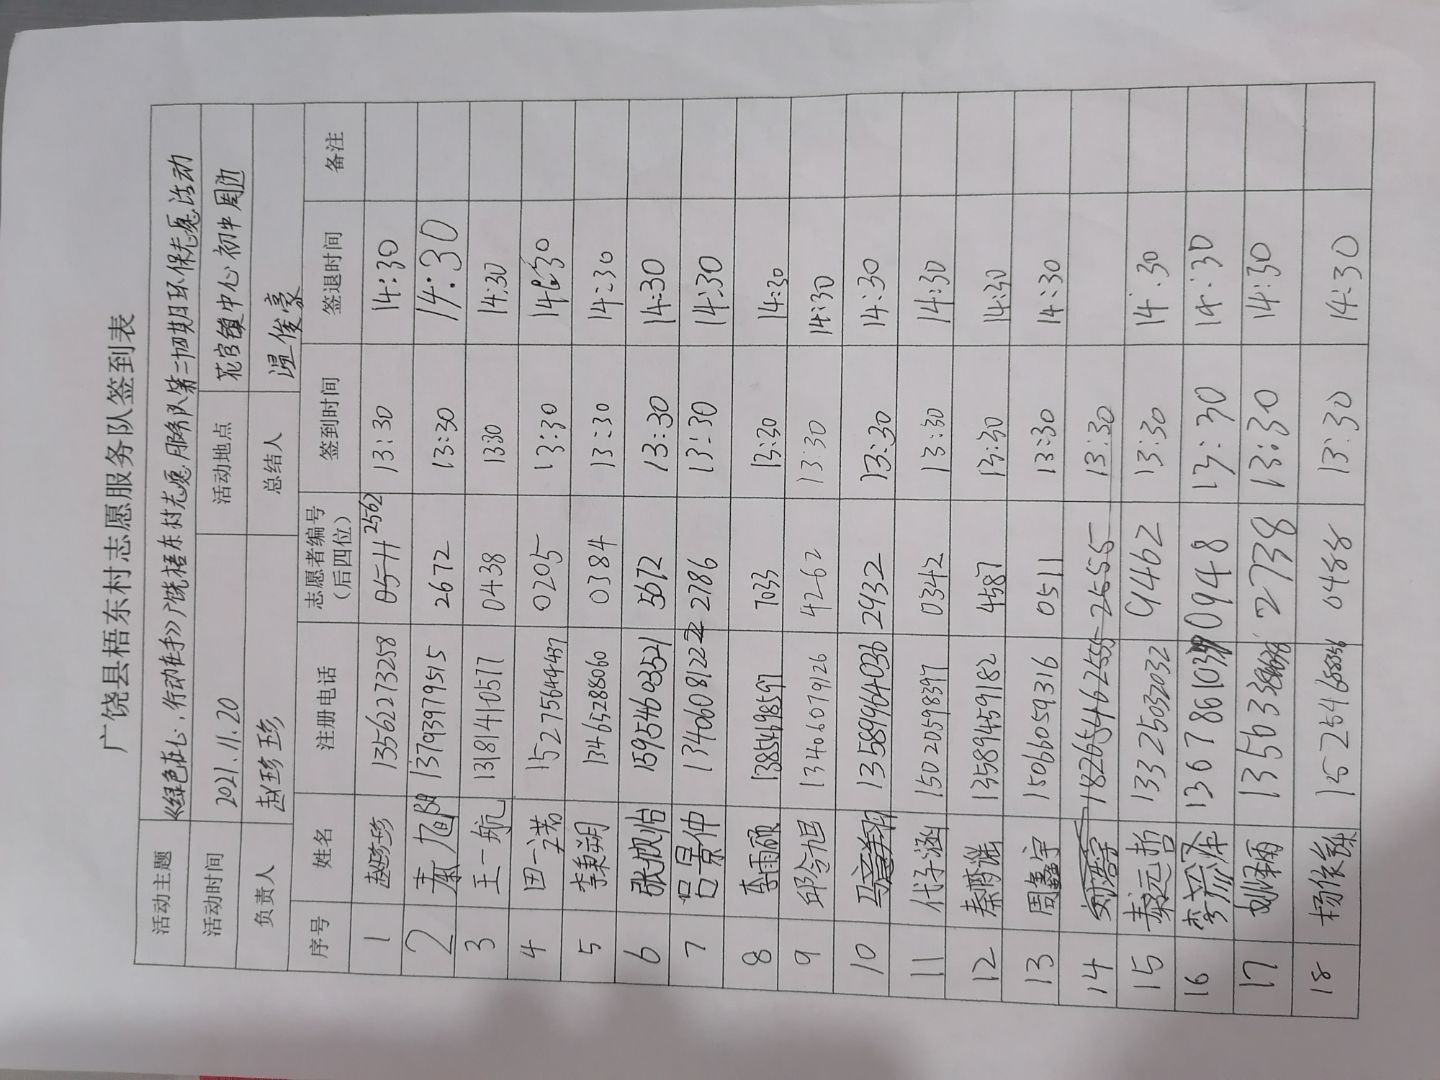 广饶县梧东村志愿服务队签到表
活动主题 《绿色在心,行动在手》广饶梧东村志愿服务队第二十四期环保志愿活动
活动时间 2021.11.20 活动地点 花官镇中心初中周边
负责人 赵珍珍 总结人 温俊豪
序号 姓名 注册电话 志愿者编号(后四位) 签到时间 签退时间 备注
1 赵珍珍 13562273258 2562 13:30 14:30
2 旭阳 13793979515 2672 13:30 14:30
3 王一航 13181410577 0438 13:30 14:30
4 田一诺 15275644437 0205 13:30 14:30
5 李秉朔 13465288060 0384 13:30 14:30
6 张欣怡 15954603521 5072 13:30 14:30
7 吕景仲 13406081222 2786 13:30 14:30
8 李雨硕 13854698597 7033 13:30 14:30
9 邱令旭 13406079126 4262 13:30 14:30
10 13589464036 2932 13:30 14:30
11 代子涵 15020598397 0342 13:30 14:30
12 秦梦谣 13589459182 4587 13:30 14:30
13 周鑫宇 15066059316 0511 13:30 14:30
14 18205462555 2555 13:30
15 袁远哲 13325032032 9462 13:30 14:30
16 李 泽 0948 13:30 14:30
17 135633 2738 13:30 14:30
18 杨俊 0488 13:30 14:30